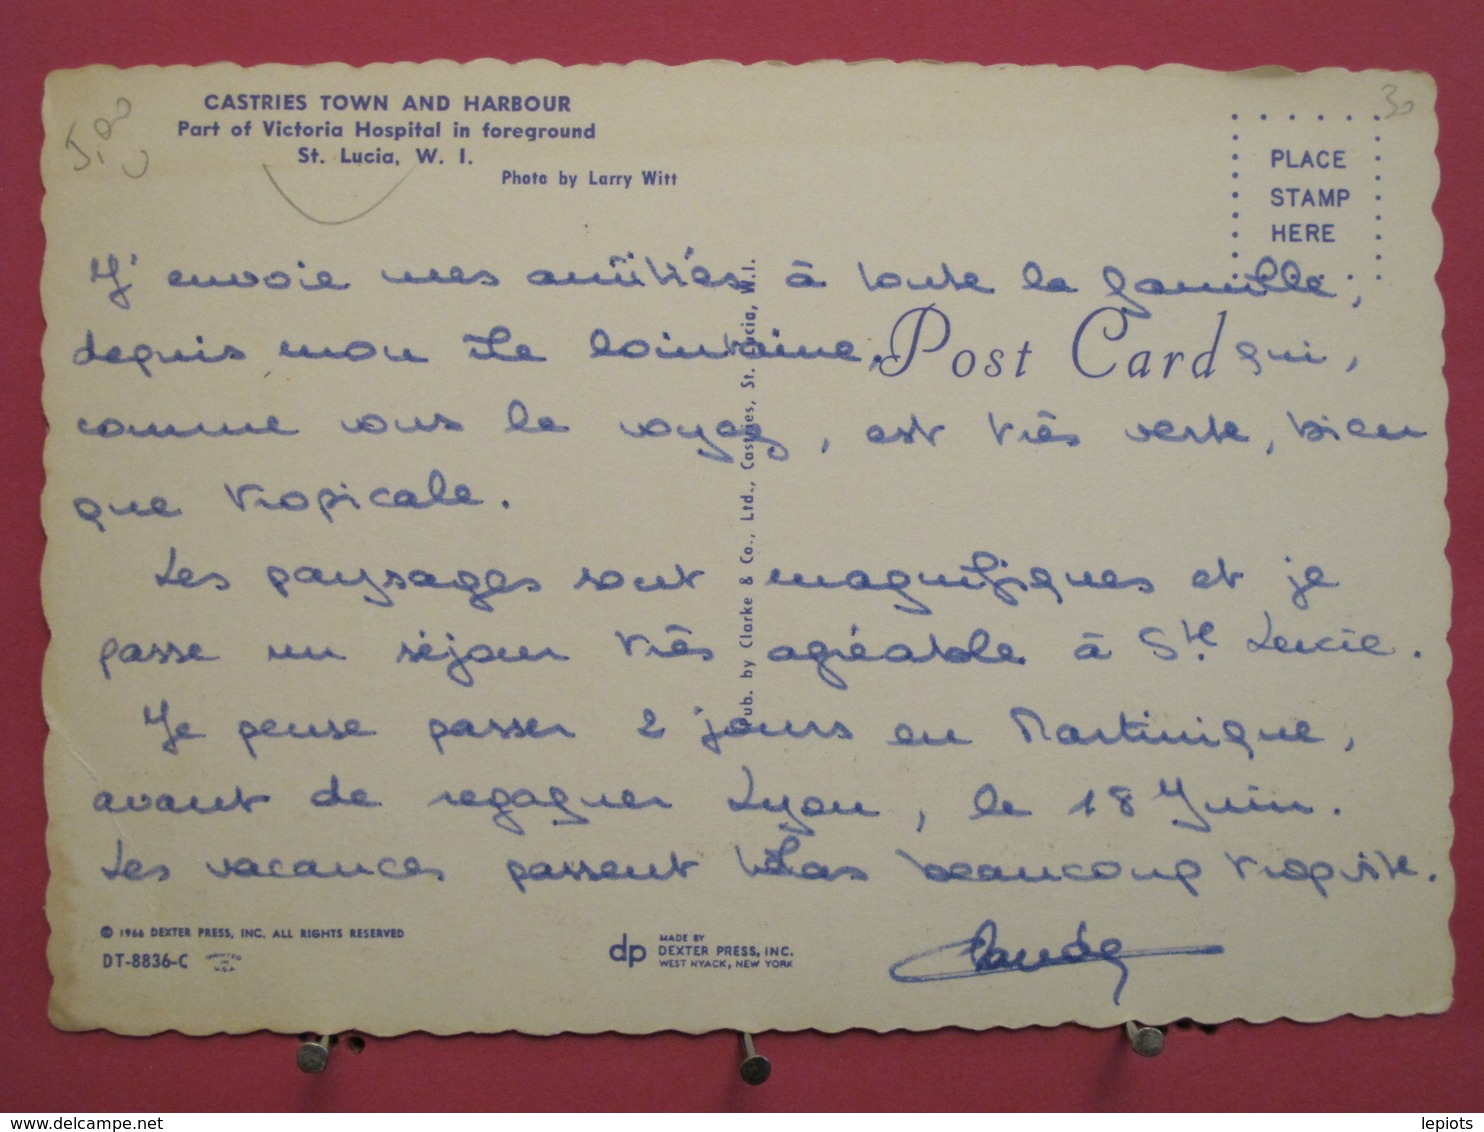 CASTRIES TOWN AND HARBOUR
Part of Victoria Hospital in foreground
St. Lucia, W. I.
Photo by Larry Witt
30
PLACE
STAMP
HERE
J'envoie mes amitiés à toute la famille,
depuis mon île lointaine, qui,
Post Card
comme vous le voyez, est très verte, bien
que tropicale.
Les paysages sont magnifiques et je
passe un séjour très agréable à Ste Lucie.
Je pense passer 2 jours en Martinique,
avant de regagner Lyon, le 18 Juin.
Les vacances passent hélas beaucoup trop vite.
Claude
Pub. by Clarke & Co., Ltd., Castries, St. Lucia, W.I.
© 1966 DEXTER PRESS, INC. ALL RIGHTS RESERVED
DT-8836-C
PRINTED
IN
U.S.A.
dp
MADE BY
DEXTER PRESS, INC.
WEST NYACK, NEW YORK
http://www.delcampe.net
lepiots